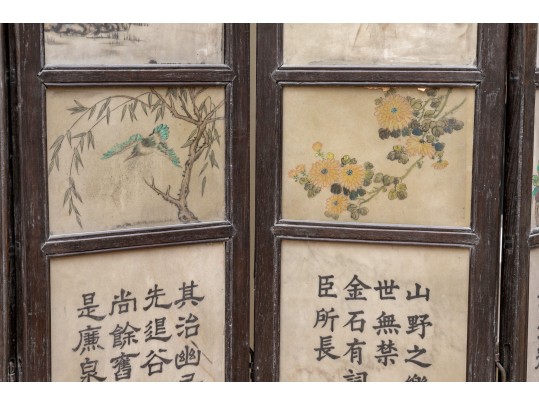 山野之樂
世無禁
金石有詞
臣所長
其治幽
先退谷
尚餘舊
是廉泉